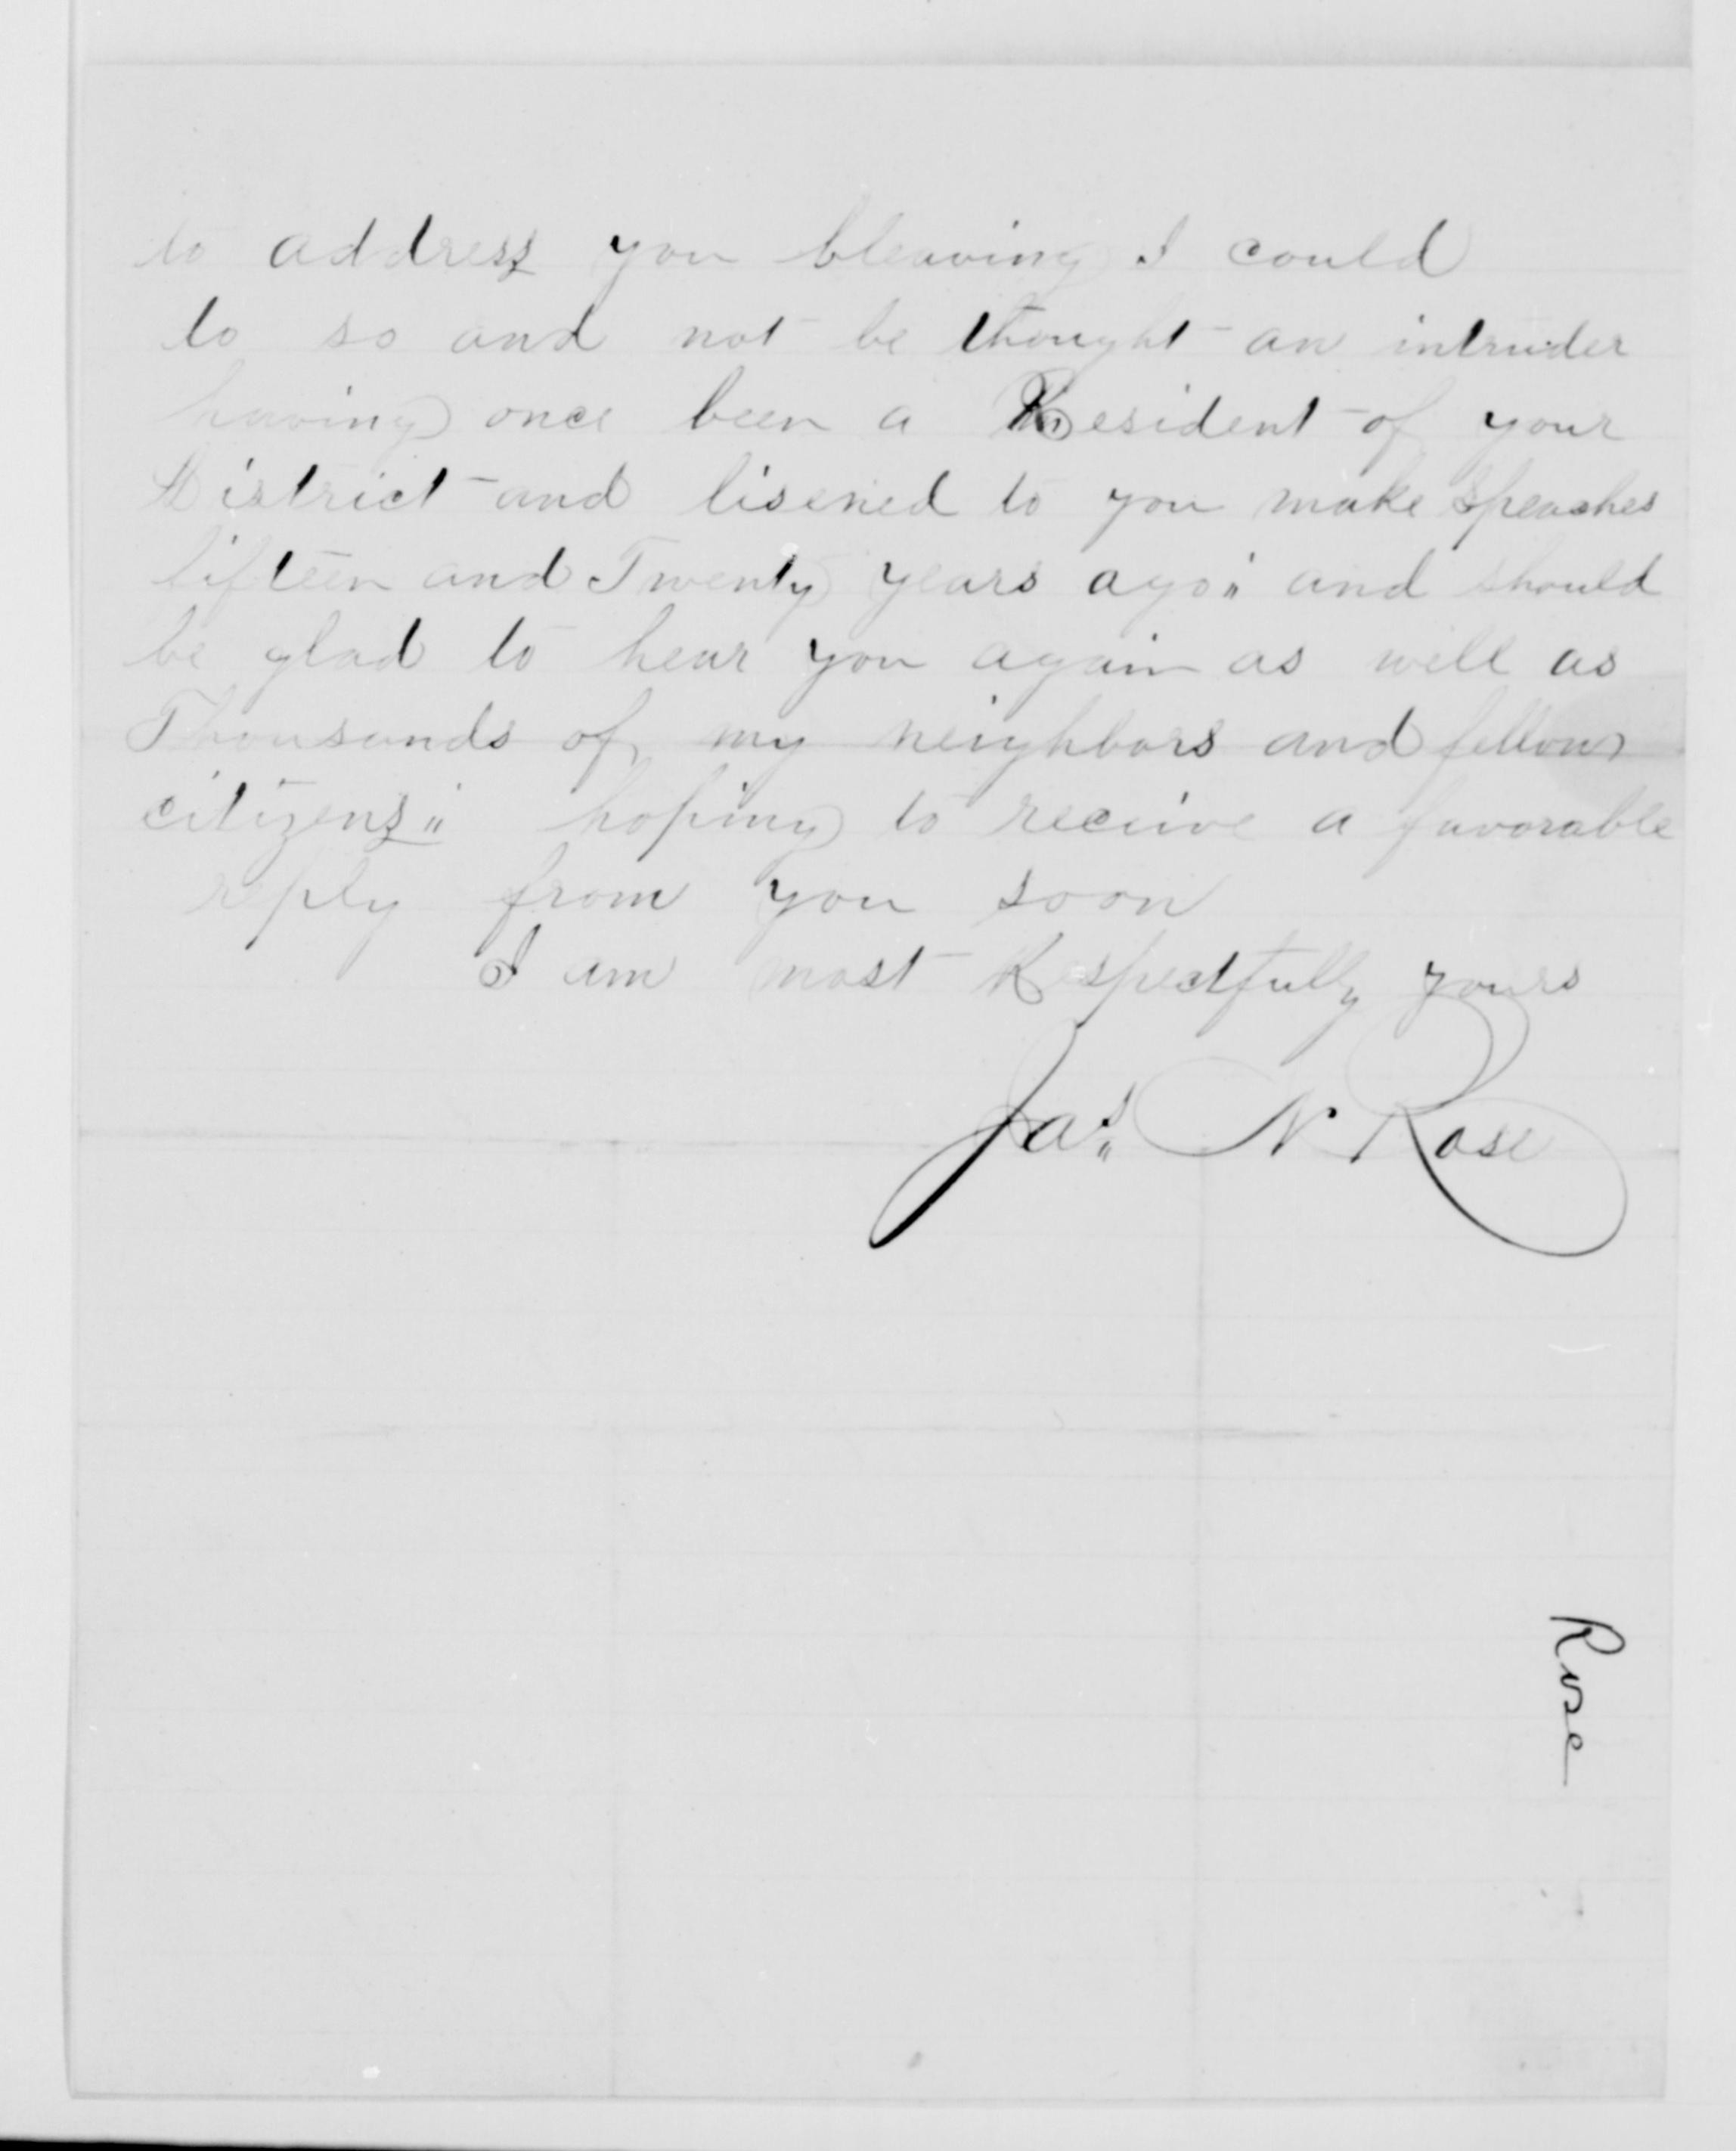 to address you bleaving I could
to so and not be thought an intruder
having once been a Resident of your
District and lisened to you make speaches
fifteen and Twenty years ago" and should
be glad to hear you again as well as
Thousands of my neighbors and fellow
citizens" hoping to receive a favorable
reply from you soon
I am most Respectfully yours
Jas. N Rose
Rose